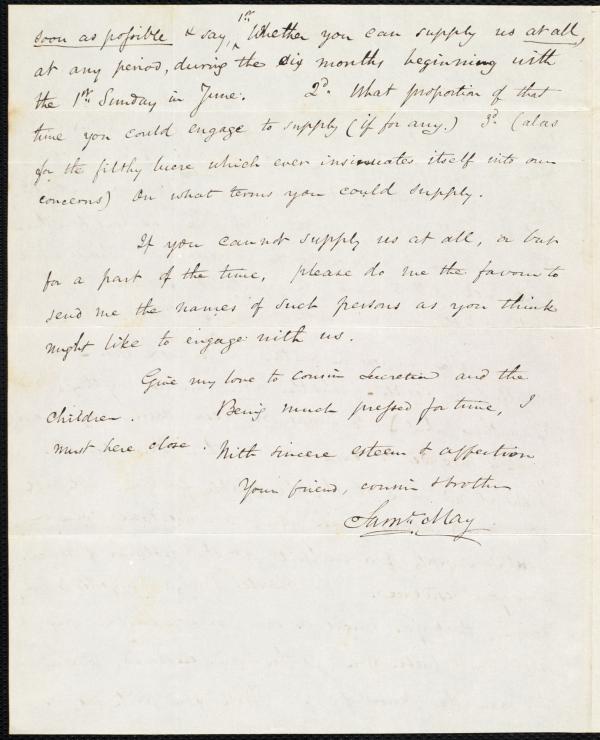 soon as possible & say, 1st. Whether you can supply us at all,
at any period, during the six months beginning with
the 1st. Sunday in June. 2d. What proportion of that
time you could engage to supply (if for any.) 3d. (alas
for the filthy lucre which ever insinuates itself into our
concerns) On what terms you could supply.
If you cannot supply us at all, or but
for a part of the time, please do me the favour to
send me the names of such persons as you think
might like to engage with us.
Give my love to cousin Lucretia and the
children. Being much pressed for time, I
must here close. With sincere esteem & affection
Your friend, cousin & brother
Saml. May